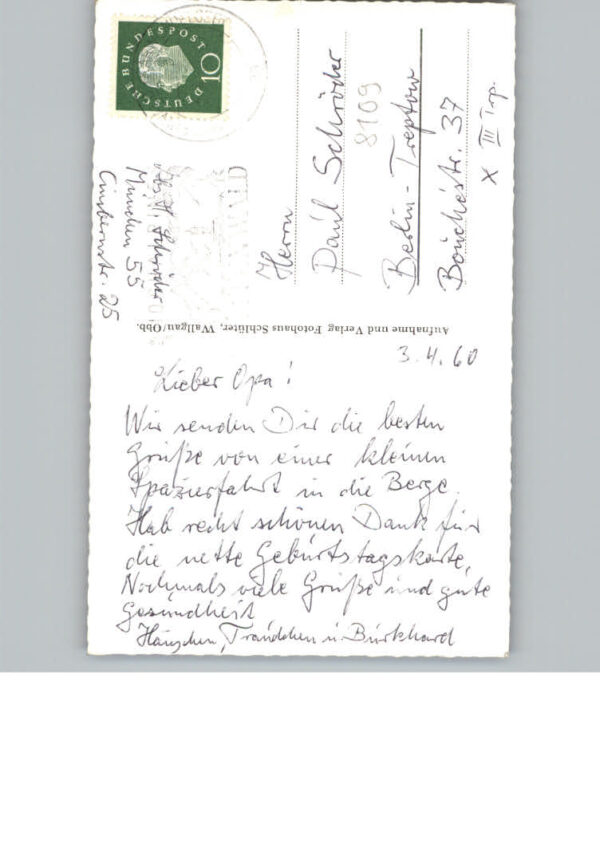 3. 4. 60
Lieber Opa!
Wir senden Dir die besten
Grüße von einer kleinen
Spazierfahrt in die Berge.
Hab recht schönen Dank für
die nette Geburtstagskarte.
Nochmals viele Grüße und gute
Gesundheit
Hänschen, Traudchen u. Burkhard
Aufnahme und Verlag Fotohaus Schlüter, Wallgau/Obb.
DEUTSCHE BUNDESPOST
10
Abs. H. Schröder
München 55
25
Herrn
Paul Schröder
8109
Berlin-Treptow
Bouchéstr. 37
X III Trp.